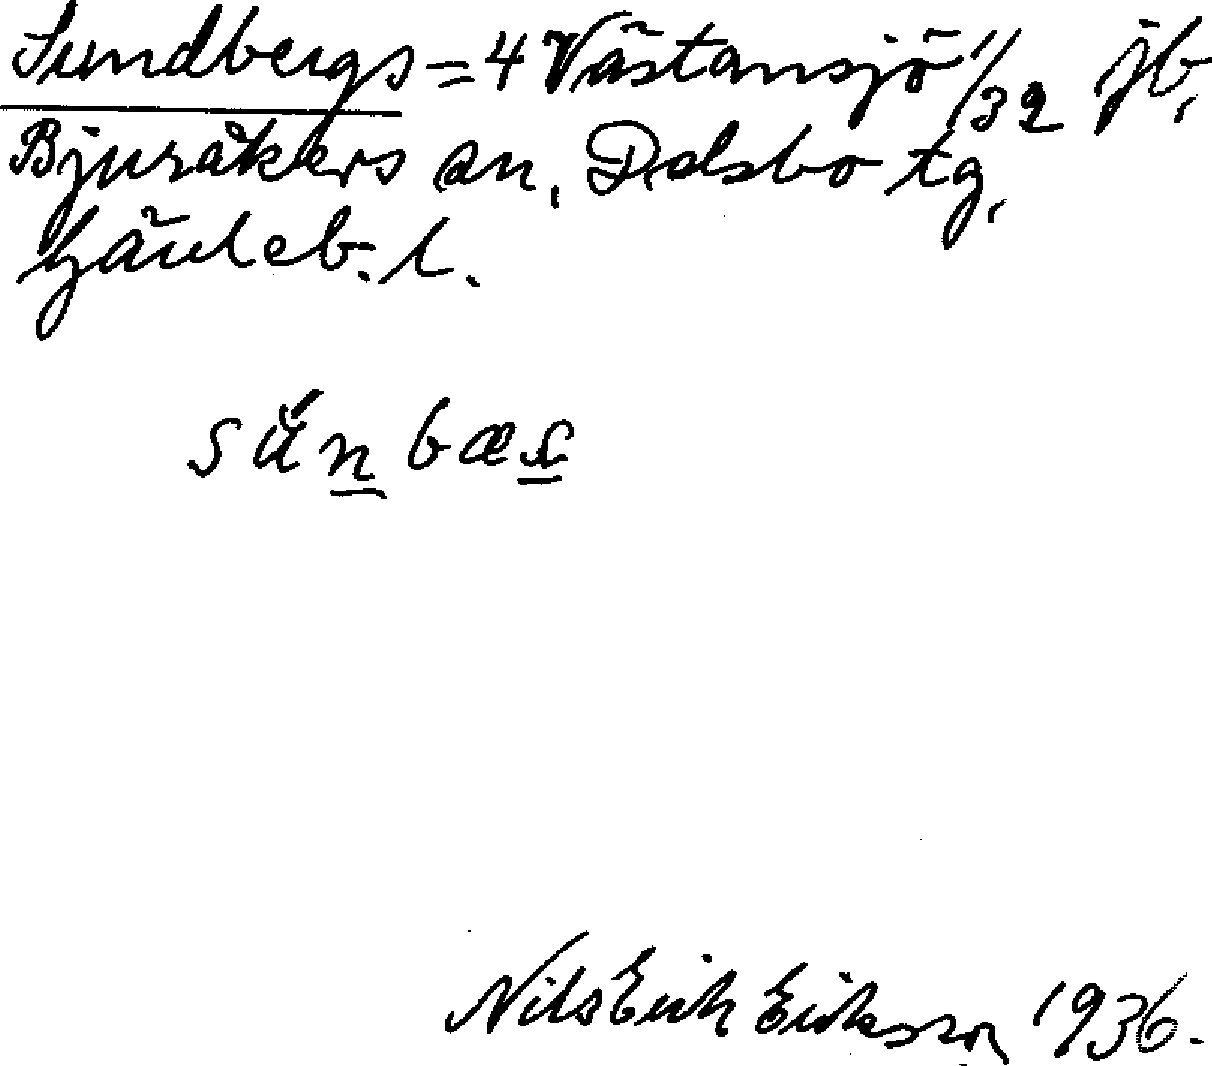 Sundbergs = 4 Västansjö 1/32 jb,
Bjuråkers sn, Delsbo tg,
Gävleb. l.
Nils Erik Eriksson 1936.